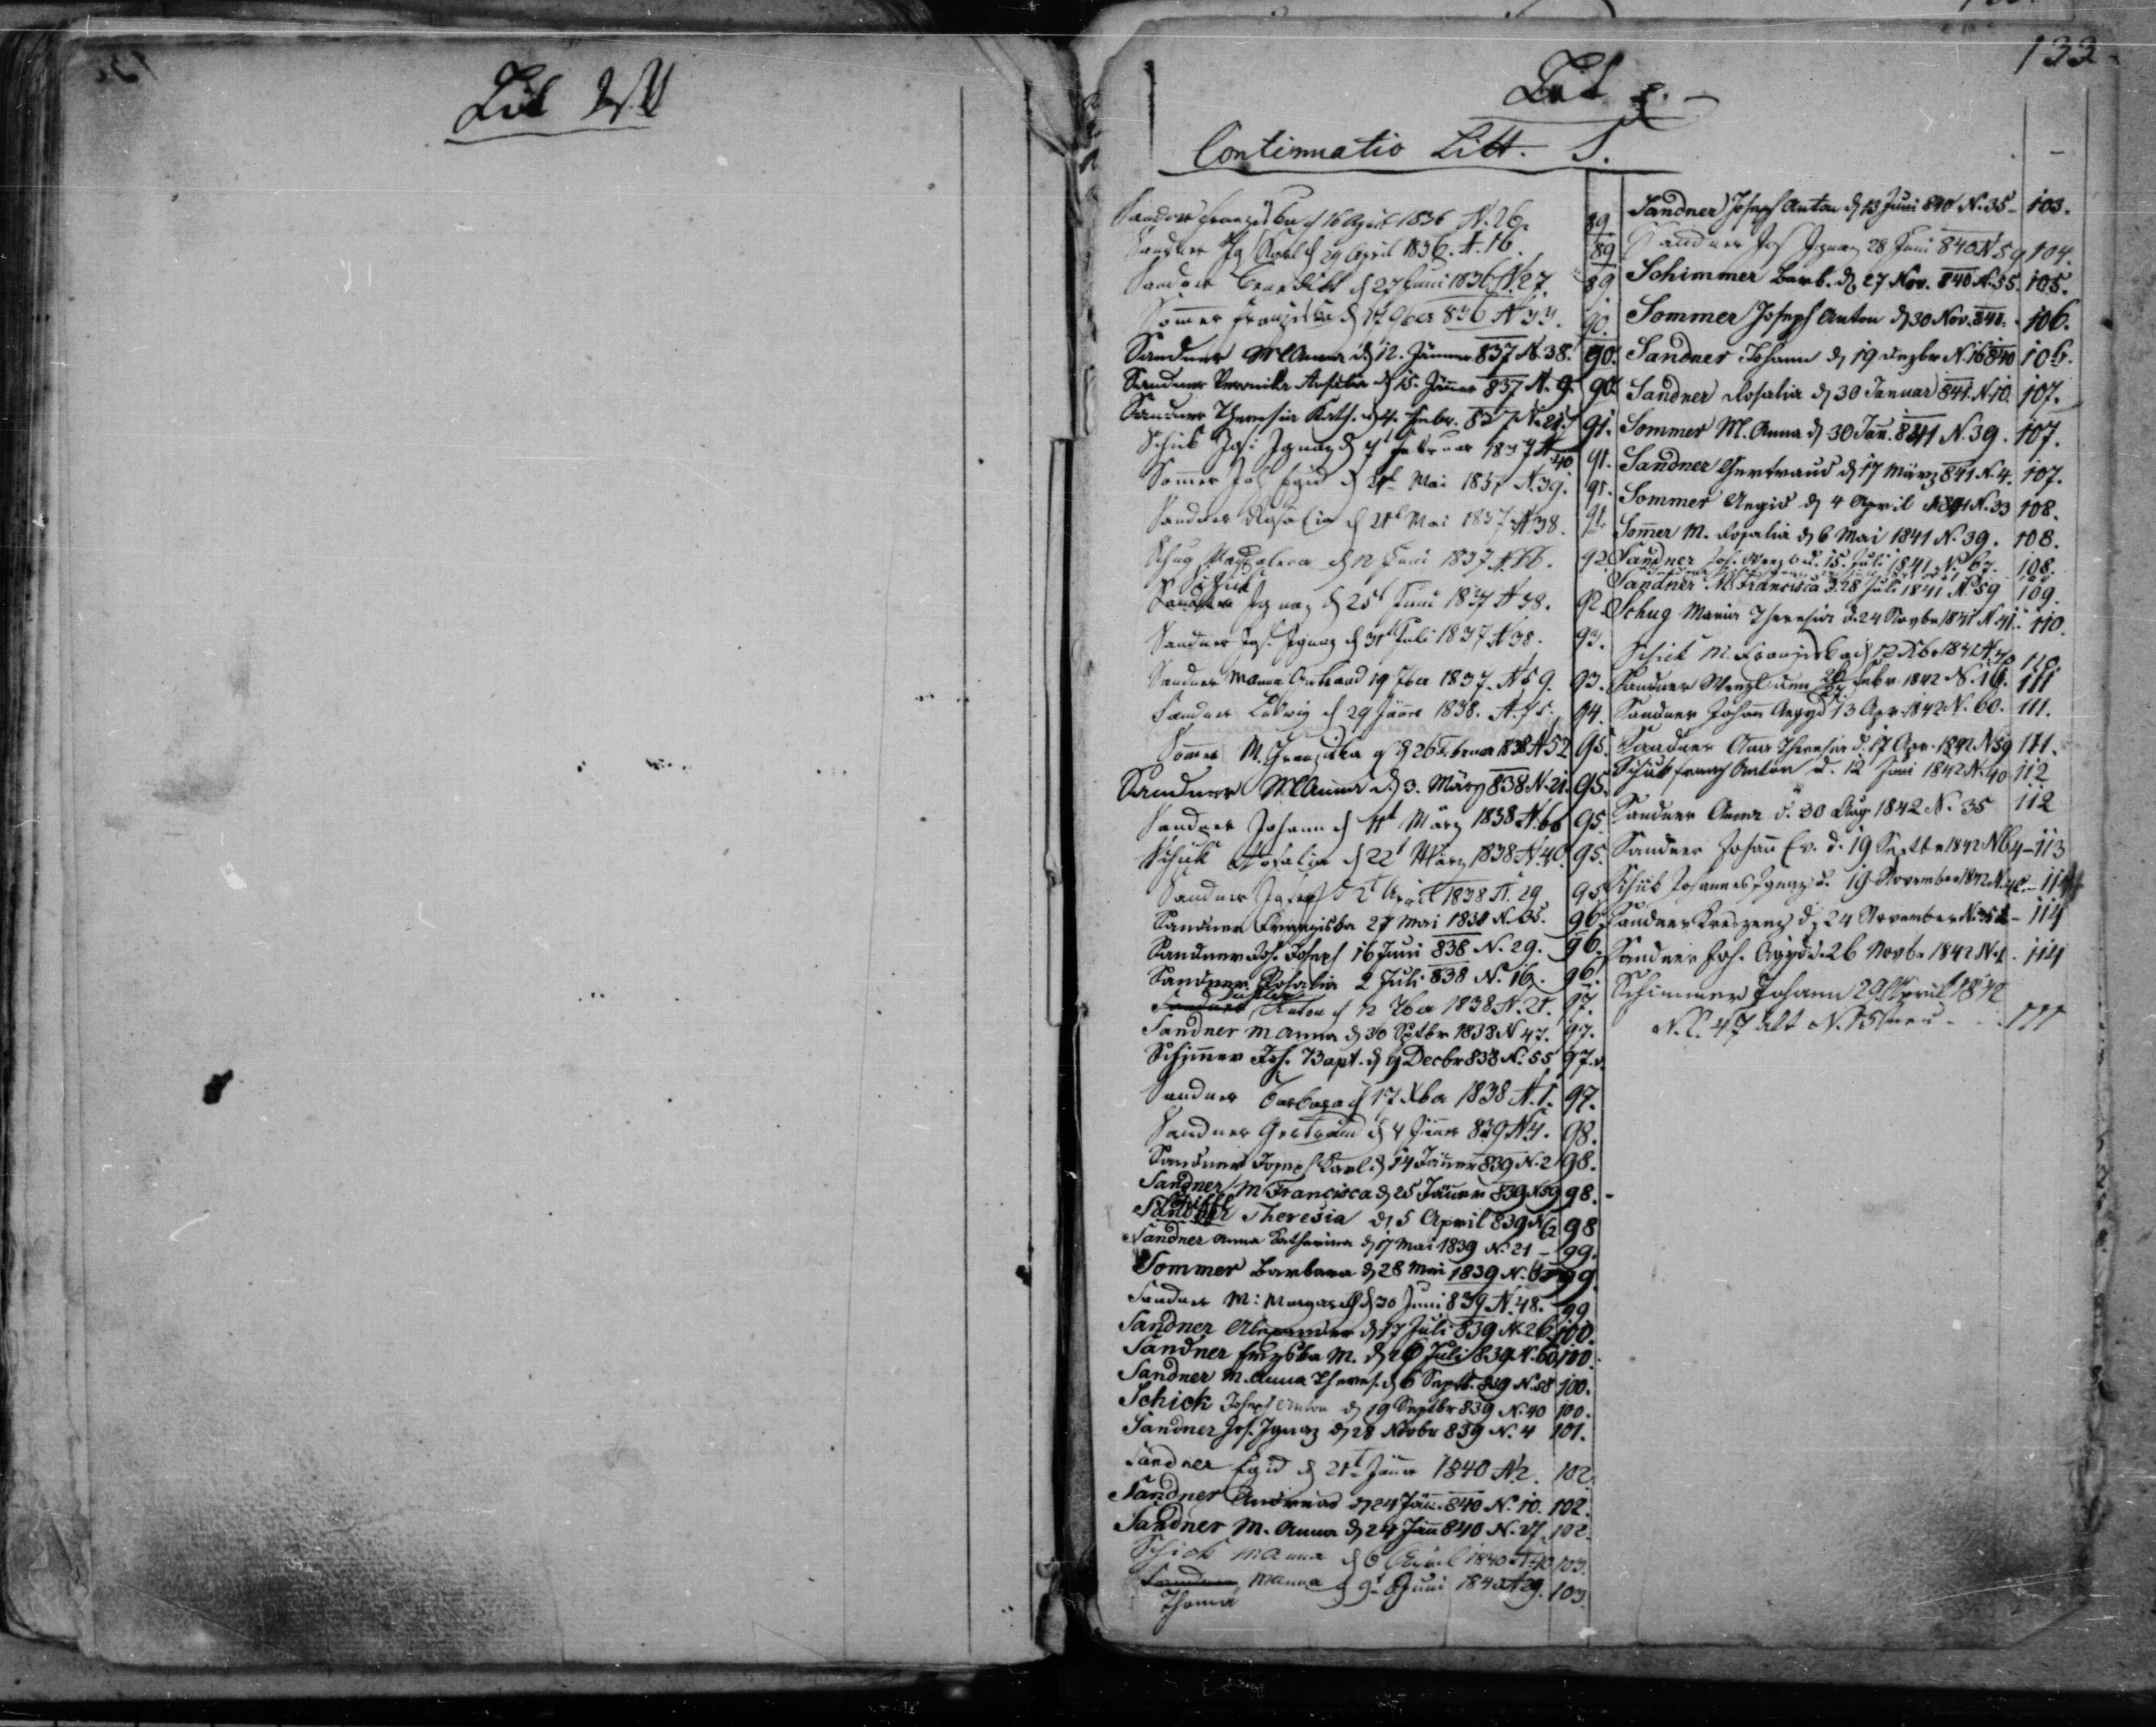 Lit W
133
Lit
Continuatio Litt. S.
Sandner Franziska d 16 April 1836 N. 26. 89
Sandner Jg Karl d 29 April 1836. N. 16. 89
Sandner Benedikt d 27 Juni 1836 N. 27. 89
Sommer Franziska d 12 9ber 836 N 33. 90.
Sandner M Anna d 12. Jänner 837 N. 38. 90.
Sandner Veronika d 15. Jänner 837 N. 9. 90
Sandner Theresia Kath. d 4. Febr. 837 N. 21. 91.
Schick Jos: Ignaz d 7 Februar 1837 N 40 91.
Sommer Joh Egid d Mai 1837 N. 39. 91.
Sandner Rosalia d 21t Mai 1837 N 38. 91.
Schug Magdalena d 12 Juni 1837 92.
Schick
Sandner Ignaz d 25t Juni 1837 N 38. 92.
Sandner Jos. Ignaz d 31t Juli 1837 N 38. 93.
Sandner M Anna 19 7ber 1837. N 59. 93.
Sandner Ludwig d 29 Jänner 1838. 94.
Sommer M. Franziska d 26 Februar 1838 N 52 95
Sandner M Anna d 3. März 838 N. 21. 95.
Sandner Johann d März 1838 N. 66 95.
Schick Rosalia d 22t März 1838 N. 40. 95.
Sandner Joseph 2t April 1838 N. 29 95
Sandner Franziska 27 Mai 1838 N. 35. 96.
Sandner Joh. Joseph 16 Juni 838 N. 29. 96.
Sandner Rosalia 2 Juli 838 N. 16. 96.
Sandner Anton d 12 7ber 1838 N. 21. 97.
Sandner M Anna d 30 Sptbr 1838 N 47. 97.
Schimmer Joh. Bapt. d 9 Decbr 838 N. 55 97.
Sandner Barbara d 17 Xber 1838 N. 1. 97.
Sandner Gertraud d 4 Jänner 839 N 4. 98.
Sandner Joseph Karl d 14 Jänner 839 N. 2 98.
Sandner M Francisca d 25 Jänner 839 N 59 98.
Sandner Theresia d 5 April 839 N 98
Sandner Anna Katharina d 17 Mai 1839 N. 21 - 99.
Sommer Barbara d 28 Mai 1839 N. 99
Sandner M: Margareth d 30 Juni 839 N. 48. 99
Sandner Alexander d 17 Juli 839 N. 26 100.
Sandner Frzska M. d 26 Juli 839 N. 60 100.
Sandner M. Anna Theres. d 6 Septb. 839 N. 58 100.
Schick Joseph Anton d 19 Septbr 839 N. 40 100.
Sandner Jos. Ignaz d 28 Novbr 839 N. 4 101.
Sandner Egid d 21t Jänner 1840 N 2. 102
Sandner Andreas d 24 Jän. 840 N. 10. 102.
Sandner M. Anna d 24 Jän 840 N. 27. 102.
Schick M Anna d 6 April 1840 N. 40 103.
Sandner M Anna d 9t Juni 1840 N 29. 103.
Thoma
Sandner Joseph Anton d 13 Juni 840 N. 35 - 103.
Sandner Jos Ignaz 28 Juni 840 N 59 104.
Schimmer Barb. d 27 Nov. 840 N. 35. 105.
Sommer Joseph Anton d 30 Nov. 840. 106.
Sandner Johann d 19 Dezbr N. 16 840 106.
Sandner Rosalia d 30 Januar 841. N. 10. 107.
Sommer M. Anna d 30 Jän. 841 N. 39. 107.
Sandner Gertraud d 17 März 841 N. 4. 107.
Sommer Aegid d 4 April 1841 N. 33 108.
Sommer M. Rosalia d 6 Mai 1841 N. 39. 108.
Sandner Jos. Wenz d. 15. Juli 1841 N. 67. 108.
Sandner M. Francisca d. 28 Juli 1841 N 59 109.
Schug Maria Theresia d. 24 Novbr 1841 N. 41. 110.
Schick M. Franziska d 12 Xbr 1841 N 40 110.
Sandner Wenzl den 26/27. Febr 1842 N. 16. 111
Sandner Johann Aegyd 13 Apr. 1842 N. 60. 111.
Sandner Anna Theresia d. 17 Apr. 1842 N 59 111.
Schick Franz Anton d. 12 Juni 1842 N. 40 112
Sandner Anna d. 30 Aug 1842 N. 35 112
Sandner Johann Ev. d. 19 Septbr 1842 N 64 - 113
Schick Johannes Ignaz d. 19 November 1842 N. 40. - 114
Sandner Kreszenz d 24 November N. 35 - 114
Sandner Joh. Aegyd d. 26 Novbr 1842 N. 1. 114
Schimmer Johann 29 April 1842
N. C. 47 alt N. 55 neu - . . . 111